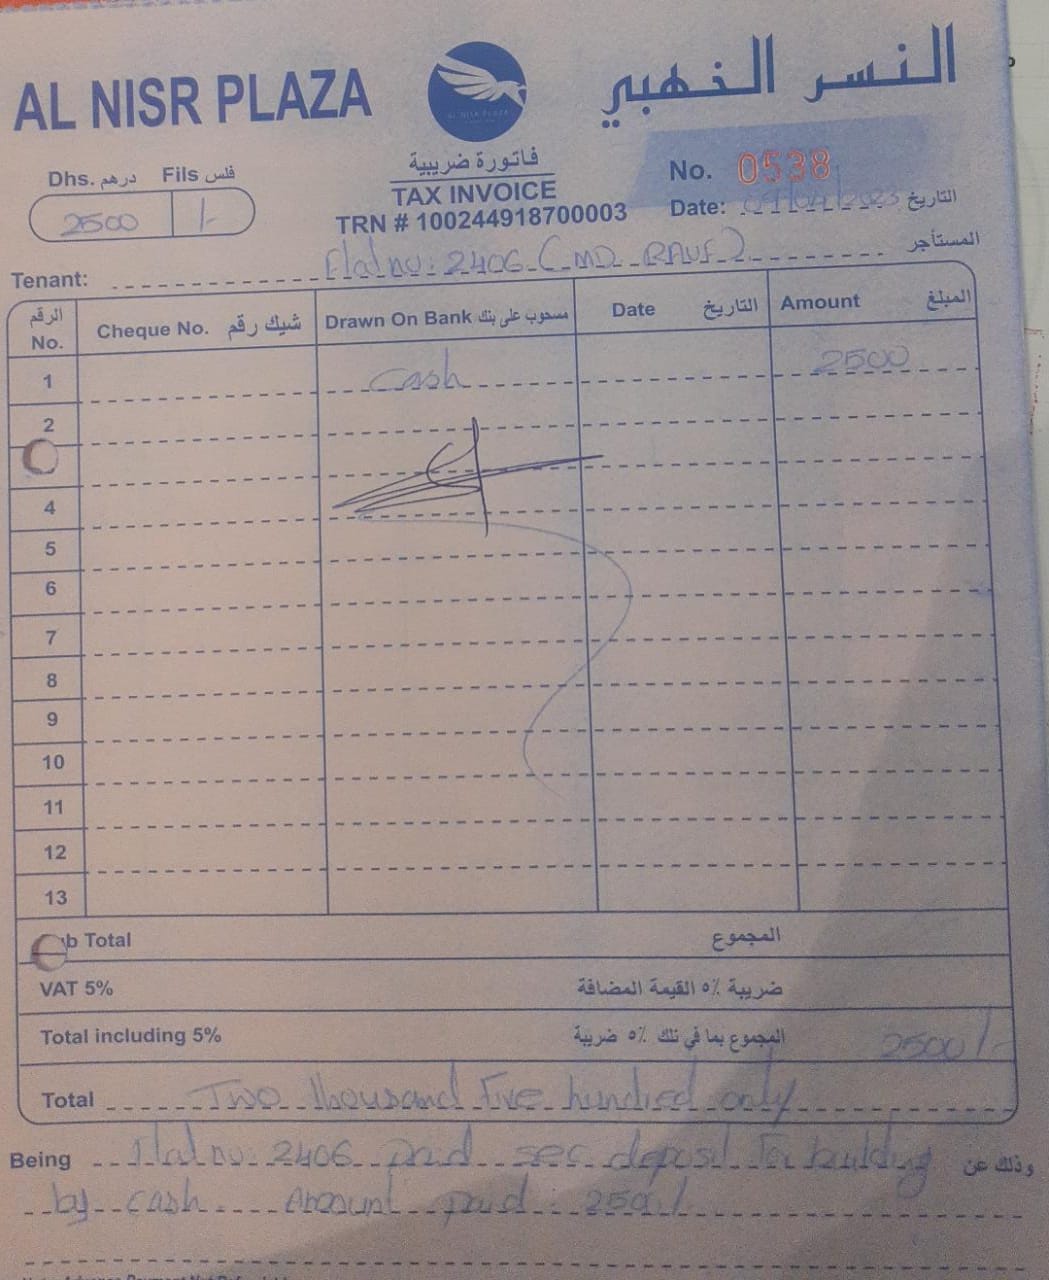 AL NISR PLAZA
AL NISR PLAZA
النسر الذهبي
Dhs. درهم Fils فلس
2500 /-
فاتورة ضريبية
TAX INVOICE
TRN # 100244918700003
No. 0538
Date: التاريخ
Tenant: Flat no: 2406 (MD RAUF) المستأجر
الرقم No. Cheque No. شيك رقم Drawn On Bank مسحوب على بنك Date التاريخ Amount المبلغ
1 Cash 2500
2
4
5
6
7
8
9
10
11
12
13
b Total المجموع
VAT 5% ضريبة ٥٪ القيمة المضافة
Total including 5% المجموع بما في تلك ٥٪ ضريبة 2500/-
Total Two thousand Five hundred only
Being Flat no: 2406 paid sec deposit For building وذلك عن
by cash Amount paid : 2500/